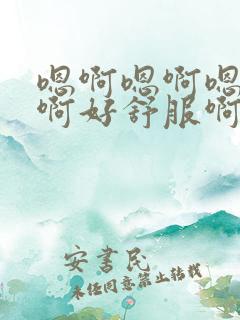 嗯啊嗯啊嗯
啊好舒服啊
安书民
未经同意禁止转载